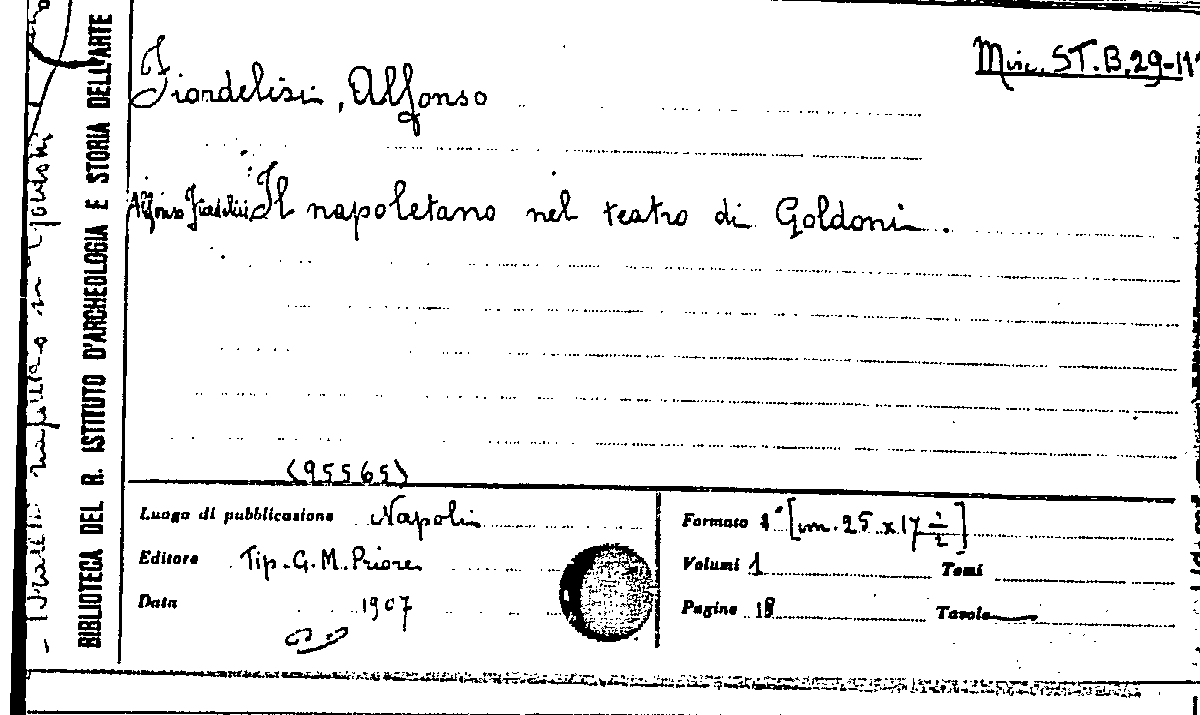 Misc. ST.B.29-11
Fiordelisi, Alfonso
Alfonso Fiordelisi Il napoletano nel teatro di Goldoni.
(95565)
Luogo di pubblicazione Napoli
Editore Tip. G. M. Priore
Data 1907
Formato 4° [cm. 25 x 17 1/2]
Volumi 1 Tomi
Pagine 18 Tavole —
BIBLIOTECA DEL R. ISTITUTO D'ARCHEOLOGIA E STORIA DELL'ARTE